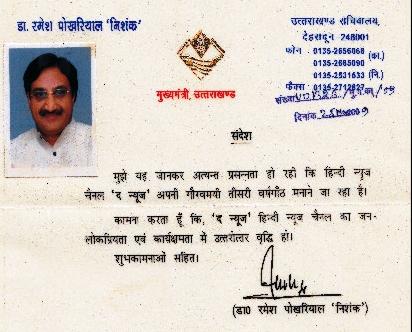 डा. रमेश पोखरियाल 'निशंक'
मुख्यमंत्री, उत्तराखण्ड
उत्तराखण्ड सचिवालय,
देहरादून 248001
फोन : 0135-2656068 (का.)
0135-2685090
0135-2531633 (नि.)
फैक्स : 0135-2712827
संख्या
दिनांक
संदेश
मुझे यह जानकर अत्यन्त प्रसन्नता हो रही कि हिन्दी न्यूज
चैनल 'द न्यूज' अपनी गौरवमयी तीसरी वर्षगाँठ मनाने जा रहा है।
कामना करता हूँ कि, 'द न्यूज' हिन्दी न्यूज चैनल का जन-
लोकप्रियता एवं कार्यक्षमता में उत्तरोत्तर वृद्धि हो।
शुभकामनाओं सहित।
(डा0 रमेश पोखरियाल 'निशंक')